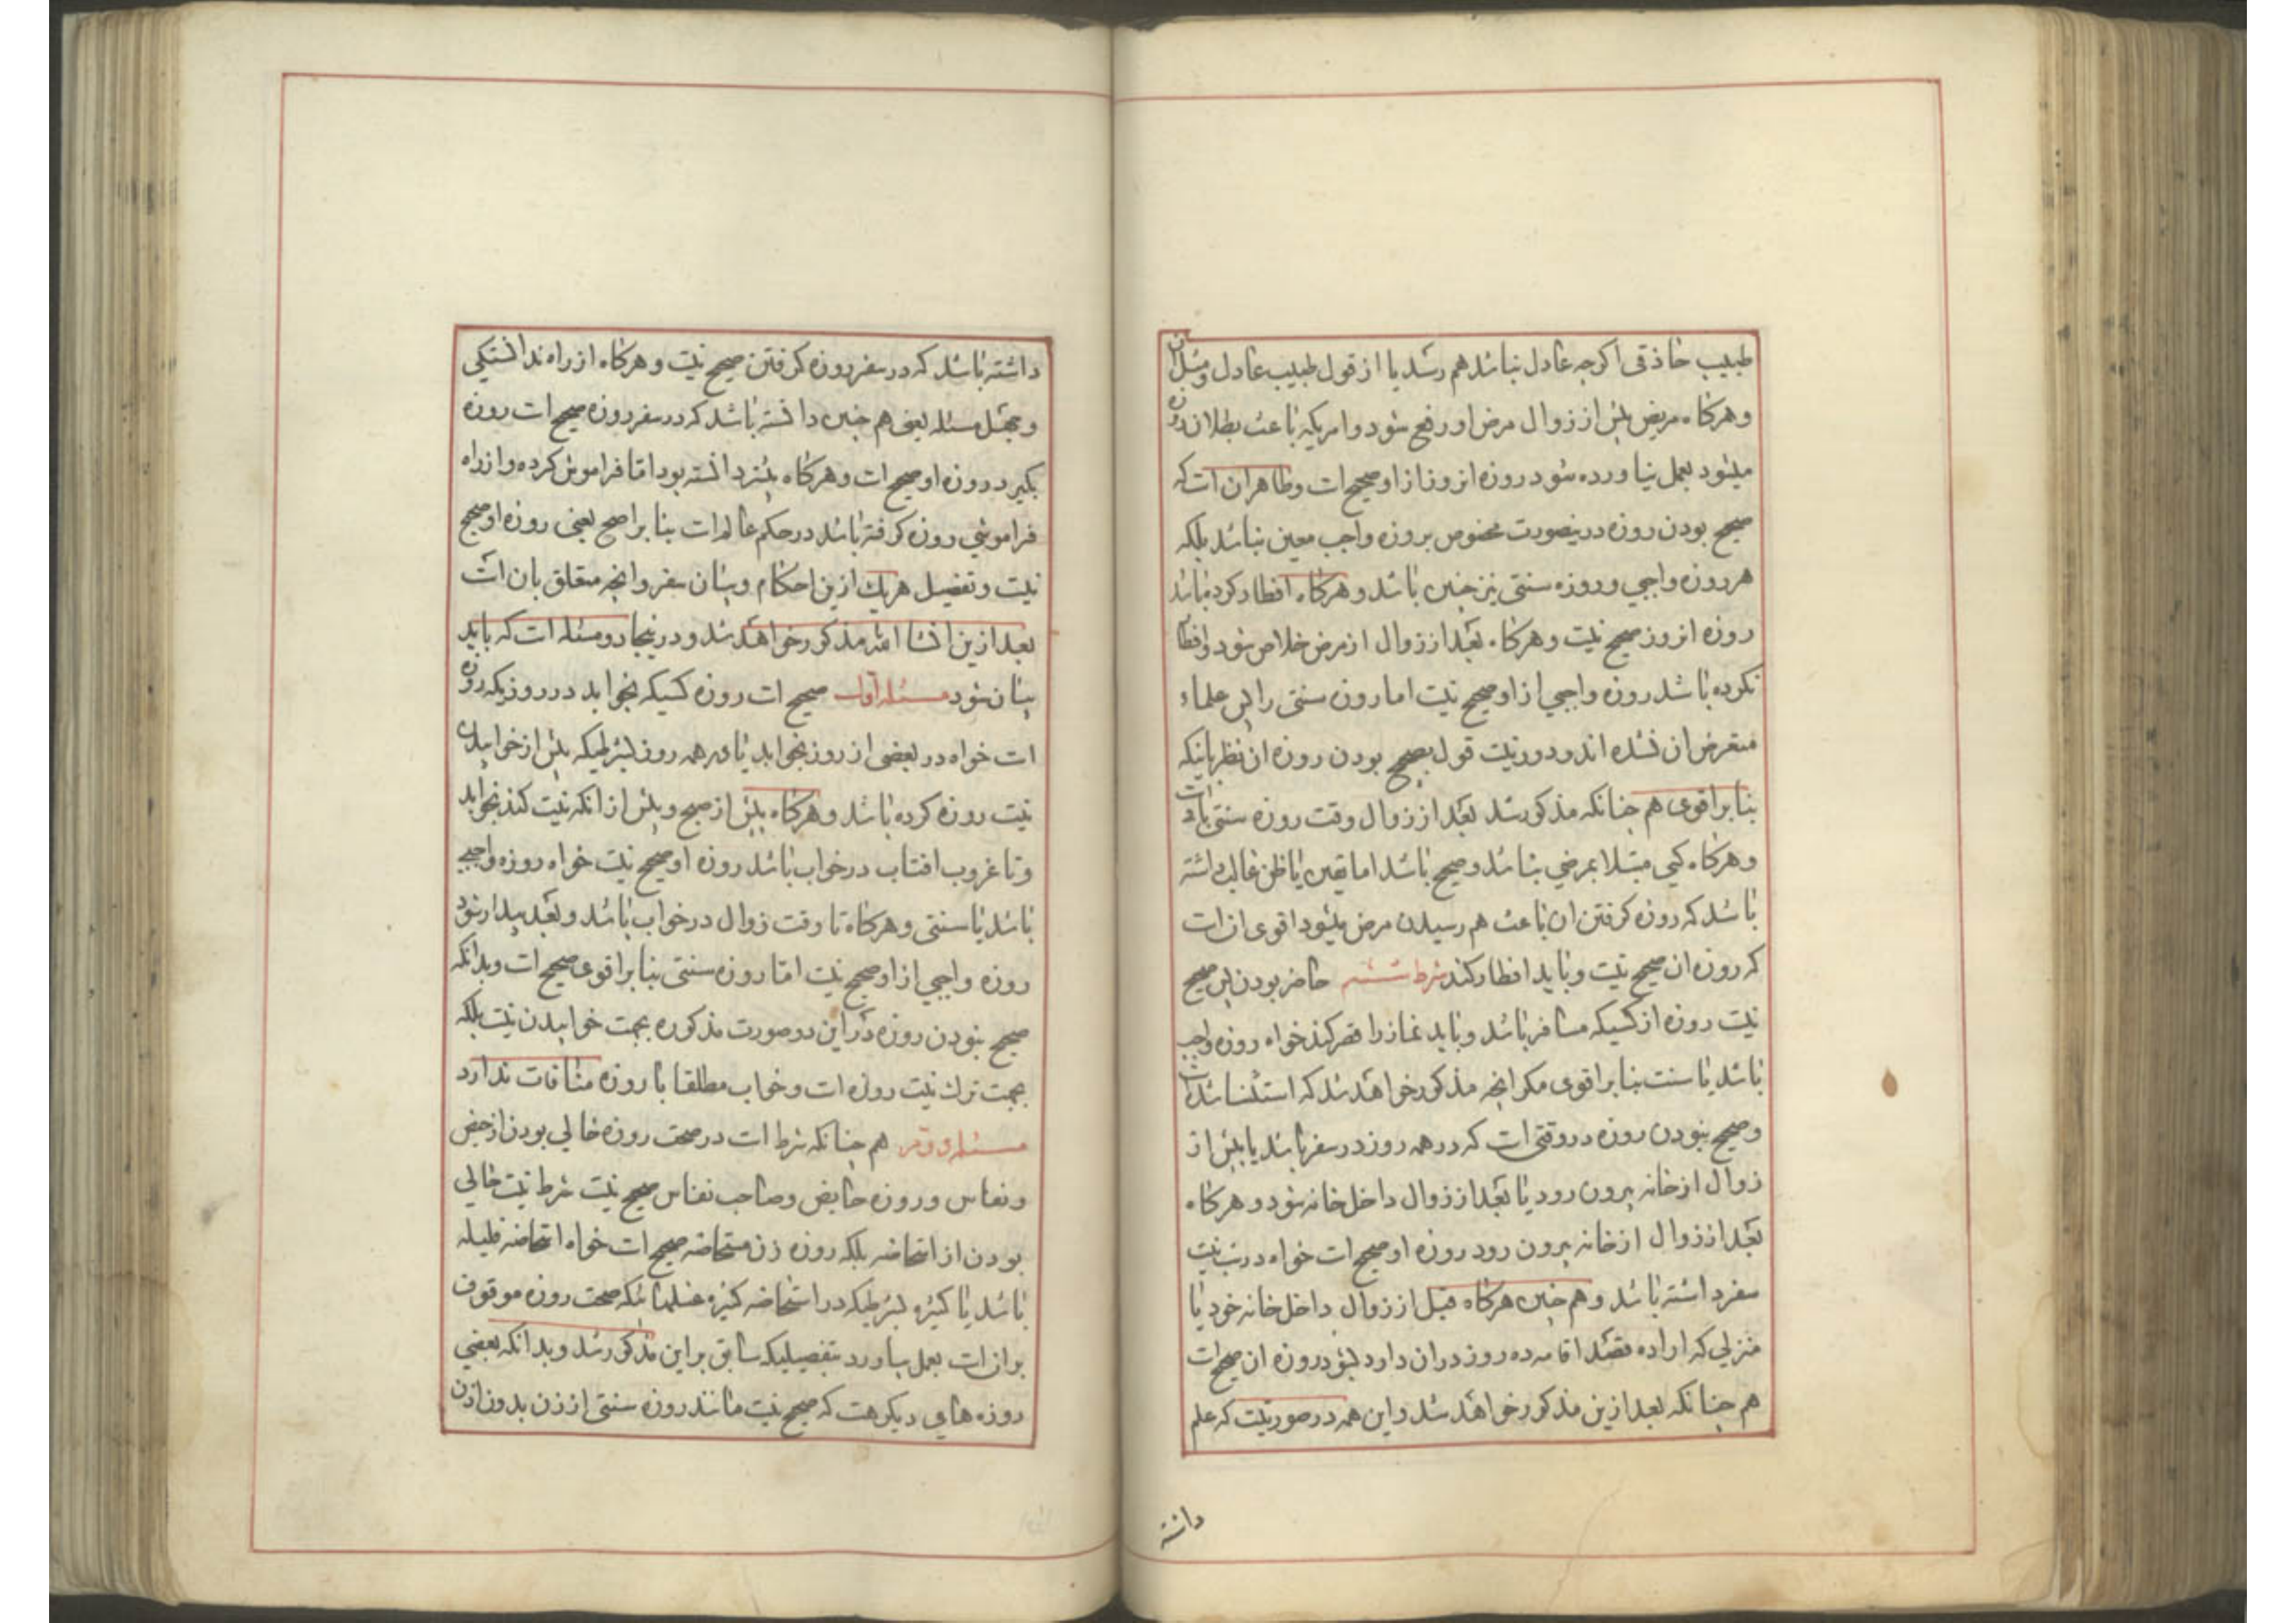 طبیب حاذقی اکرچه عادل نباشد هم رسد یا از قول طبیب عادل
وهرکاه مریض پیش از زوال مرض او رفع شود و امریکه باعث بطلان روزه
میشود بعمل نیاورده شود روزه انروز از او صحیح است وظاهر ان است که
صحیح بودن روزه درینصورت مخصوص بروزه واجب معین نباشد بلکه
هر روزه واجبی و روزه سنتی نیز چنین باشد وهرکاه افطار کرده باشد
روزه انروز صحیح نیست وهرکاه بعد از زوال از مرض خلاص شود وافطار
نکرده باشد روزه واجبی از او صحیح نیست اما روزه سنتی را پس علماء
متعرض ان نشده اند و دور نیست قول بصحیح بودن روزه ان نظر باینکه
بنابر اقوی هم چنانکه مذکور شد بعد از زوال وقت روزه سنتی باقی است
وهرکاه کسی مبتلا بمرضی نباشد وصحیح باشد اما یقین یا ظن غالب داشته
باشد که روزه کرفتن ان باعث هم رسیدن مرض میشود اقوی ان است
که روزه ان صحیح نیست وباید افطار کند شرط ششم حاضر بودن پس صحیح
نیست روزه از کسیکه مسافر باشد وباید نماز را قصر کند خواه روزه واجب
باشد یا سنت بنابر اقوی مکر انچه مذکور خواهد شد که استثنا شده است
وصحیح نبودن روزه در وقتی است که در همه روز در سفر باشد یا پیش از
زوال از خانه بیرون رود یا بعد از زوال داخل خانه شود وهرکاه
بعد از زوال از خانه بیرون رود روزه او صحیح است خواه در شب نیت
سفر داشته باشد وهم چنین هرکاه قبل از زوال داخل خانه خود یا
منزلی که اراده قصد اقامه ده روز در ان دارد بشود روزه ان صحیح است
هم چنانکه بعد ازین مذکور خواهد شد واین همه در صورتیست که علم
دانسته
داشته باشد که در سفر روزه کرفتن صحیح نیست وهرکاه از راه ندانستکی
وجهل مسئله یعنی هم چنین دانسته باشد که در سفر روزه صحیح است روزه
بکیرد روزه او صحیح است وهرکاه پیشتر دانسته بود اما فراموش کرده واز راه
فراموشی روزه کرفته باشد در حکم عالم است بنابر اصح یعنی روزه او صحیح
نیست وتفصیل هریك ازین احکام وبیان سفر وانچه متعلق بان است
بعد ازین انشا الله مذکور خواهد شد ودرینجا دو مسئله است که باید
بیان شود مسئله اول صحیح است روزه کسیکه بخوابد در روزیکه روزه
است خواه در بعضی از روز بخوابد یا در همه روز بشرطیکه پیش از خوابیدن
نیت روزه کرده باشد وهرکاه پیش از صبح وپیش از انکه نیت کند بخوابد
وتا غروب افتاب در خواب باشد روزه او صحیح نیست خواه روزه واجبی
باشد یا سنتی وهرکاه تا وقت زوال در خواب باشد وبعد بیدار شود
روزه واجبی از او صحیح نیست اما روزه سنتی بنابر اقوی صحیح است وبدانکه
صحیح نبودن روزه در این دو صورت مذکوره بجهت خوابیدن نیست بلکه
بجهت ترك نیت روزه است وخواب مطلقا با روزه منافات ندارد
مسئله دوم هم چنانکه شرط است در صحت روزه خالی بودن از حیض
ونفاس وروزه حایض وصاحب نفاس صحیح نیست شرط نیست خالی
بودن از استحاضه بلکه روزه زن مستحاضه صحیح است خواه استحاضه قلیله
باشد یا کثیره بشرطیکه در استحاضه کثیره غسلهائیکه صحت روزه موقوف
بر ان است بعمل بیاورد بتفصیلیکه سابق بر این مذکور شد وبدانکه بعضی
روزه های دیکر هست که صحیح نیست مانند روزه سنتی از زن بدون اذن